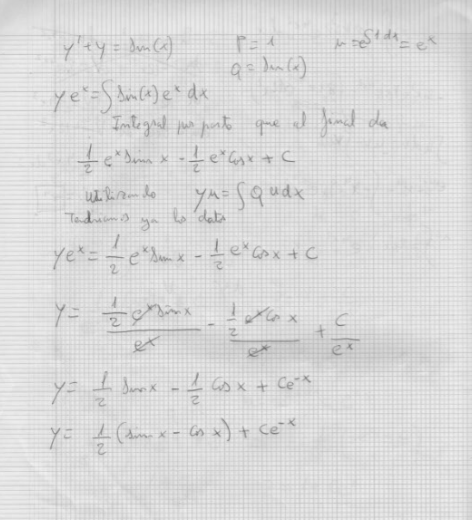 y' + y = Sen(x) P = 1 μ = e^∫1 dx = e^x
Q = Sen(x)
y e^x = ∫ Sen(x) e^x dx
Integral por que al final da
1/2 e^x Sin x - 1/2 e^x Cos x + C
utilizando yμ = ∫ Q u dx
ya lo
y e^x = 1/2 e^x Sin x - 1/2 e^x Cos x + C
y = (1/2 e^x Sin x)/e^x - (1/2 e^x Cos x)/e^x + C/e^x
y = 1/2 Sin x - 1/2 Cos x + Ce^-x
y = 1/2 (Sin x - Cos x) + Ce^-x